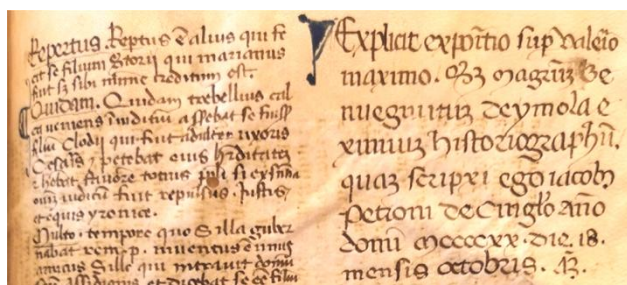 Repertus. Reptus ē alius qui fe
cit se filium Storij qui marianus
fuit sz sibi mīme creditum est.
Quidam. Quidam trebellius cal
ca veniens ī iuditiū asserebat se fuisse
filiū Clodij qui fuit adulter uxoris
Cesaris ⁊ petebat eius hēditatem
⁊ hēbat favore totius ppli si ex
iuditiū fuit repulsus. Justis
et equis yronice.
Multo. tempore quo Silla guber
nabat remp. inventus ē unus
amicus Sille qui intravit domū
et dicebat se eē filiū
Explicit expoītio sup valeīo
maximo. magrūz Be
nuegnutuz deymola e
ximiuz historiographū.
quaz scripxi ego iacobꝰ
Petroni de Cinglo año
domī mccccxx. die. 18.
mensis octobris.